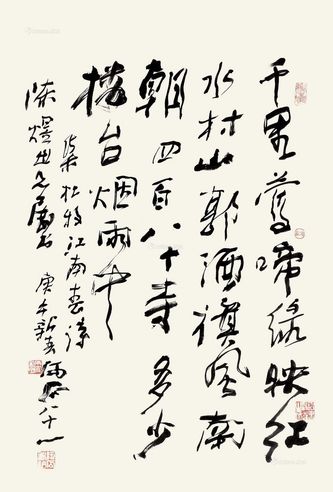 千里莺啼绿映红
水村山郭酒旗风南
朝四百八十寺多少
楼台烟雨中
杜牧江南春诗
陈煜世兄属书 庚午新春 八十一